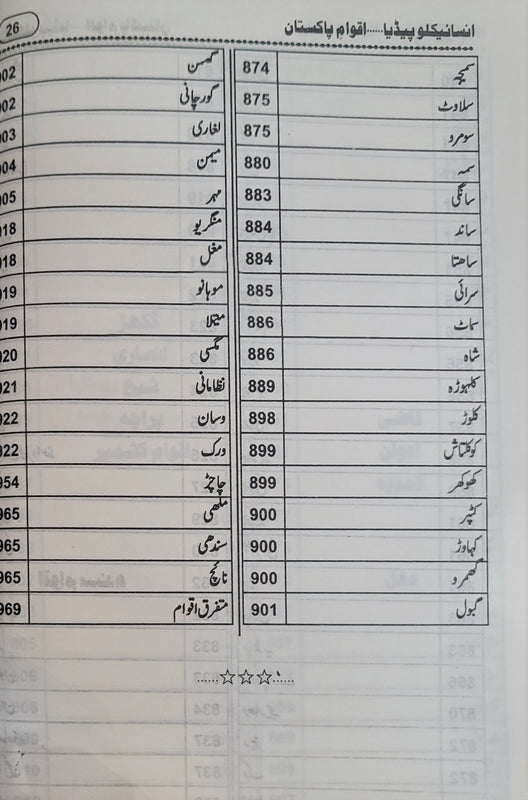 انسائیکلوپیڈیا.....اقوامِ پاکستان 26
سمیجہ 874
سلاوٹ 875
سومرو 875
سمہ 880
سانگی 883
ساند 884
ساھتا 884
سرائی 885
سماٹ 886
شاہ 886
کلہوڑہ 889
کلوڑ 898
کوکلتاش 899
کھوکھر 899
کٹپر 900
کہاوڑ 900
گھمرو 900
گبول 901
گھمن 02
گورچانی 02
لغاری 03
میمن 04
مہر 05
منگریو 18
مغل 18
موہانو 19
میتلا 19
مگسی 20
نظامانی 21
وسان 22
ورک 22
چاچڑ 54
ملھی 65
سندھی 65
نائچ 65
متفرق اقوام 969
......☆☆☆......